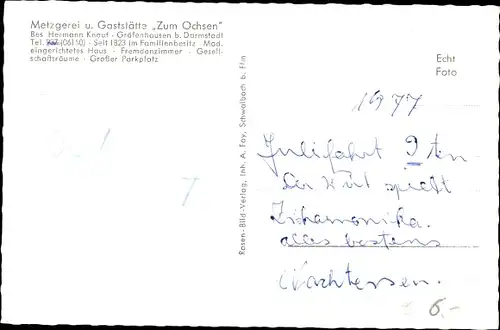 Metzgerei u. Gaststätte „Zum Ochsen"
Bes Hermann Knauf · Gräfenhausen b. Darmstadt
Tel. (06150) · Seit 1823 im Familienbesitz Mod.
eingerichtetes Haus · Fremdenzimmer · Gesell-
schaftsräume · Großer Parkplatz
Echt
Foto
Rosen-Bild-Verlag, Inh. A. Fay, Schwalbach b. Ffm
1977
Julifahrt 9ten
Der Kurt spielt
Ziehharmonika.
alles bestens
Nachtessen.
6.-